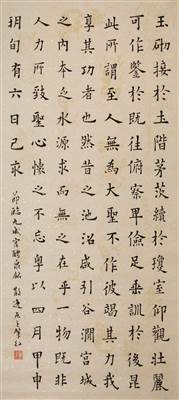 玉砌接於土階茅茨續於瓊室仰觀壯麗
可作鑒於既往俯察卑儉足垂訓於後昆
此所謂至人無為大聖不作彼竭其力我
享其功者也然昔之池沼咸引谷澗宮城
之內本乏水源求而無之在乎一物既非
人力所致聖心懷之不忘粵以四月甲申
朔旬有六日己亥 節臨九成宮醴泉銘